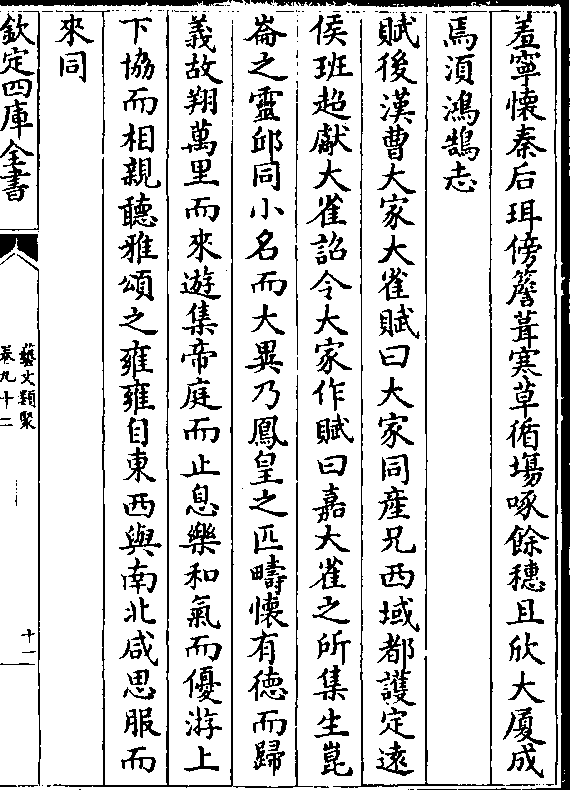 羞寧懐秦后珥傍簷葺寒草循場啄餘穗且欣大厦成
焉湏鴻鵠志
賦後漢曹大家大雀賦曰大家同産兄西域都護定遠
侯班超獻大雀詔令大家作賦曰嘉大雀之所集生崑
崙之靈邱同小名而大異乃鳳皇之匹疇懐有徳而歸
義故翔萬里而來遊集帝庭而止息樂和氣而優游上
下協而相親聽雅頌之雍雍自東西與南北咸思服而
來同
欽定四庫全書
藝文類聚
卷九十二
十一